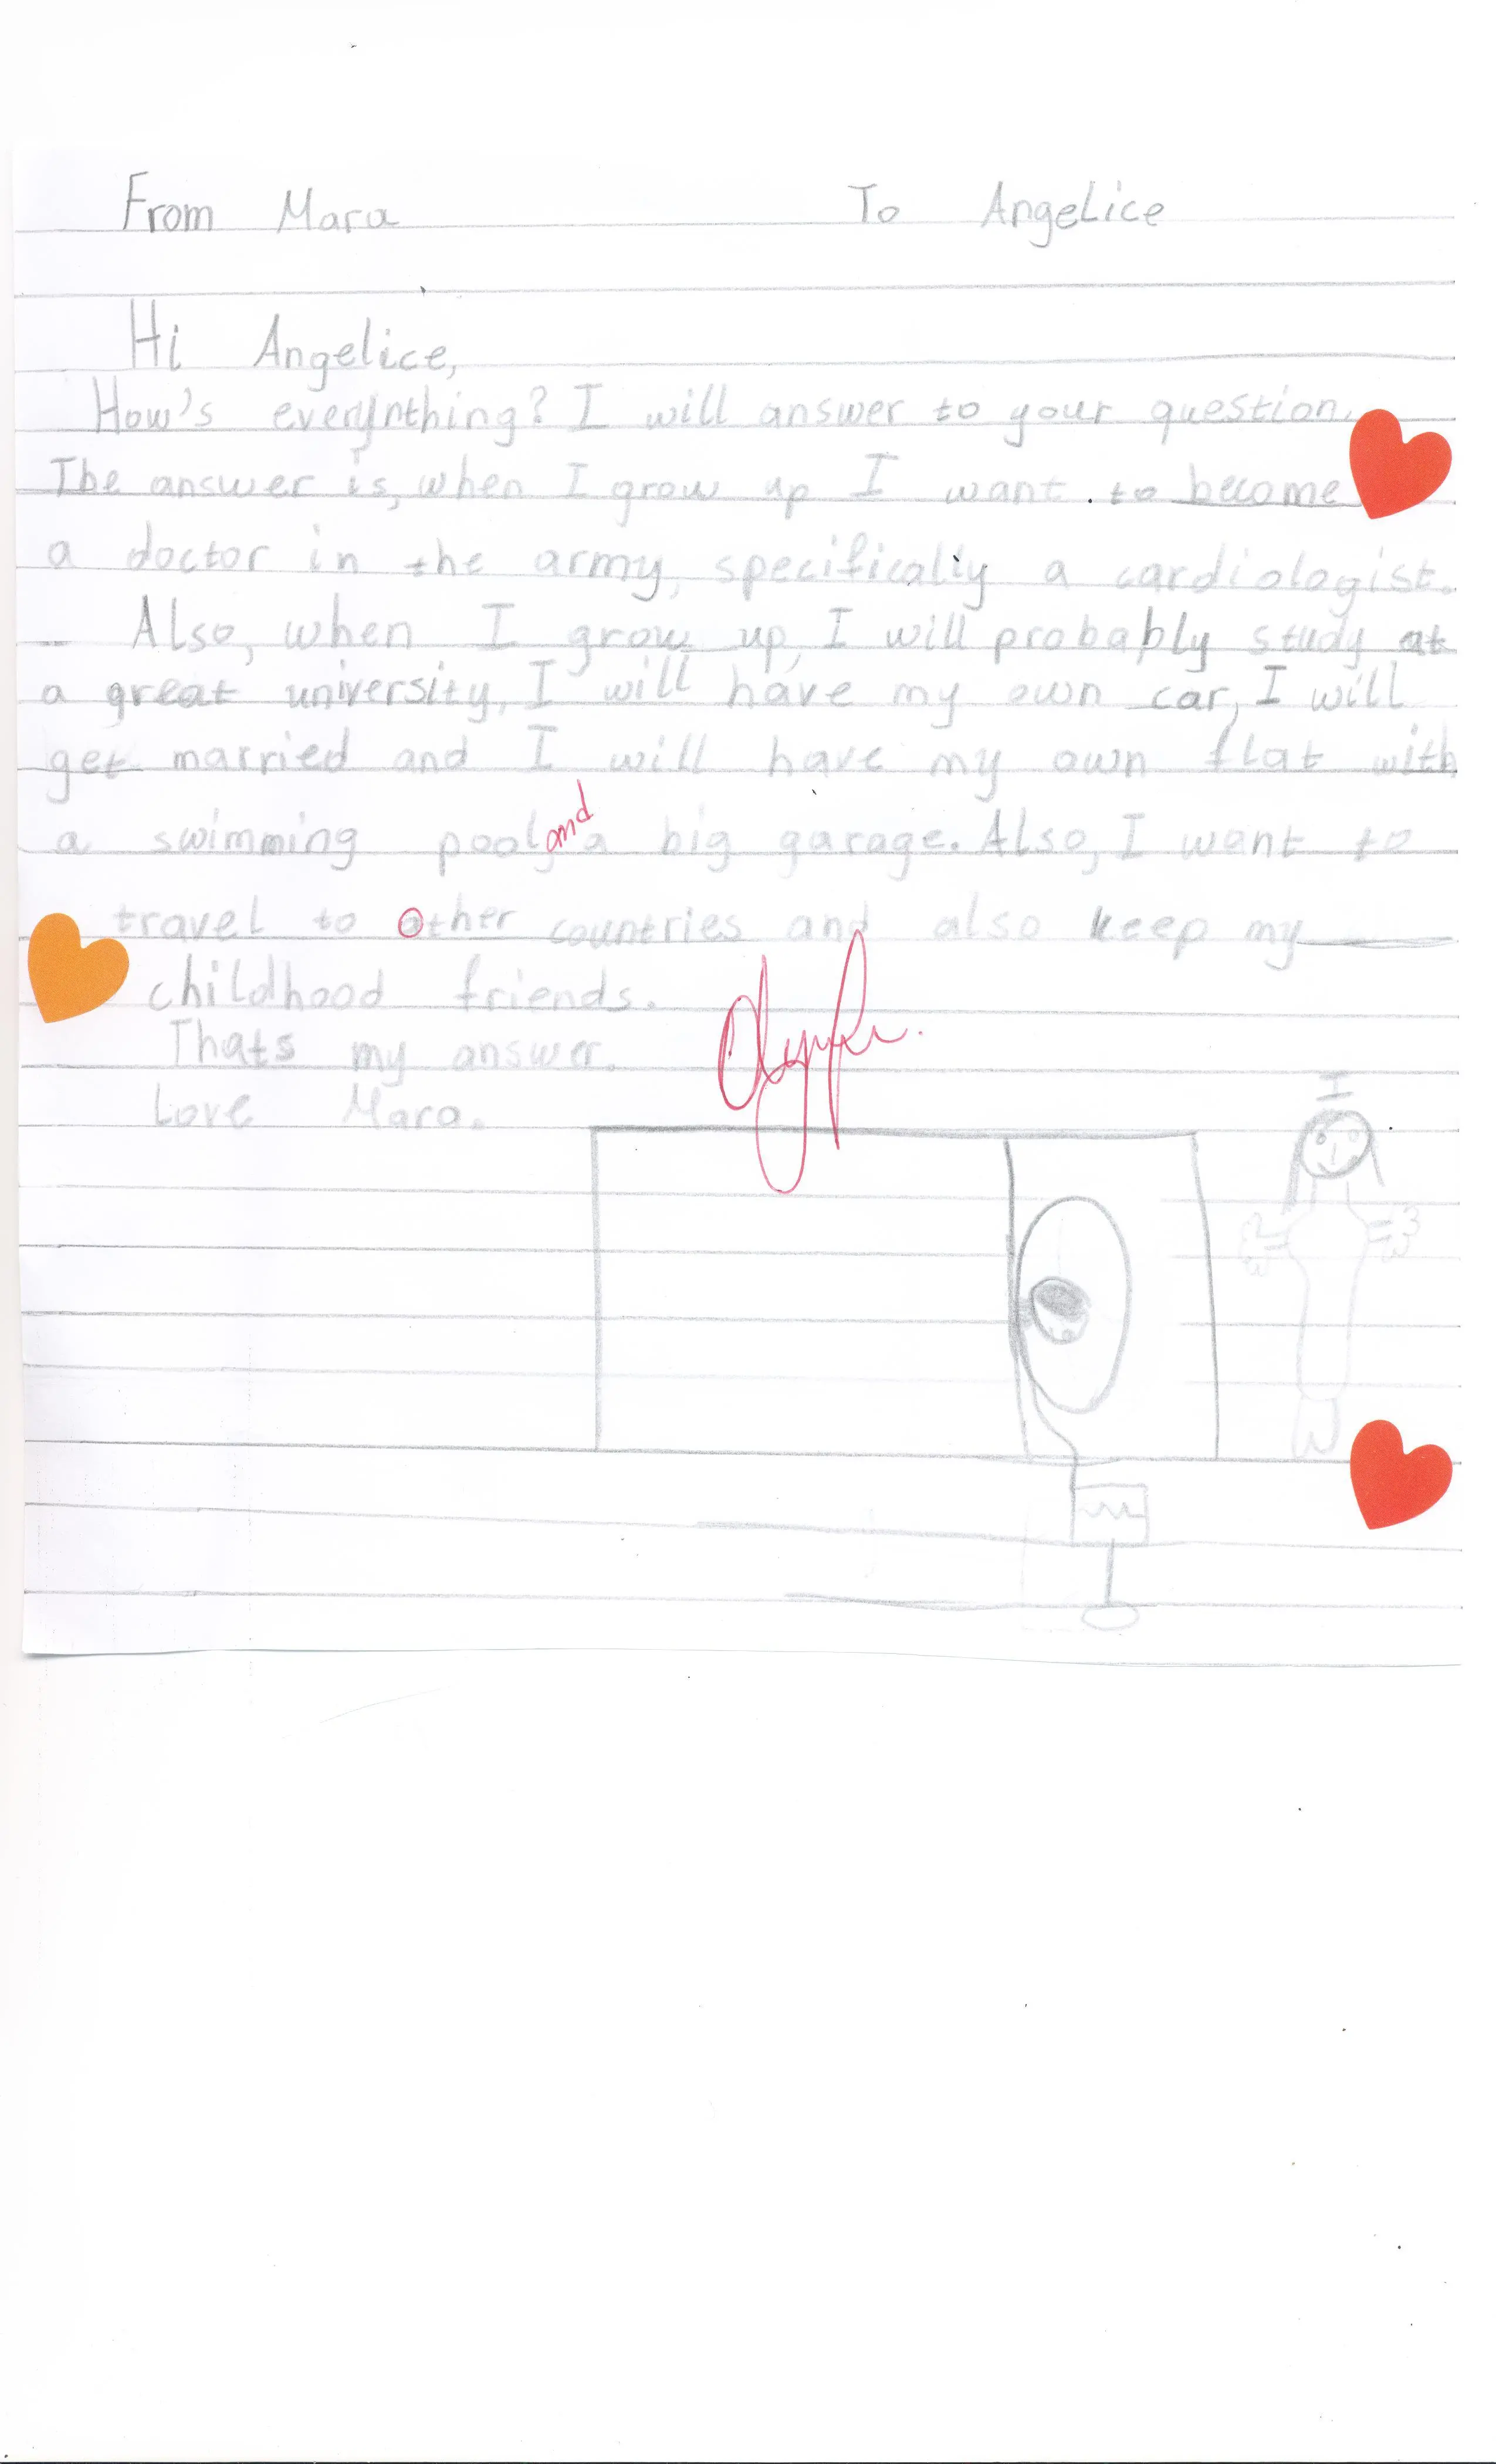 From Mara To Angelice
Hi Angelice,
How's everynthing? I will answer to your question.
The answer is, when I grow up I want to become
a doctor in the army, specifically a cardiologist.
Also, when I grow up, I will probably study at
a great university, I will have my own car, I will
get married and I will have my own flat with
a swimming pool, and a big garage. Also, I want to
travel to other countries and also keep my
childhood friends.
Thats my answer.
Love Mara.
I